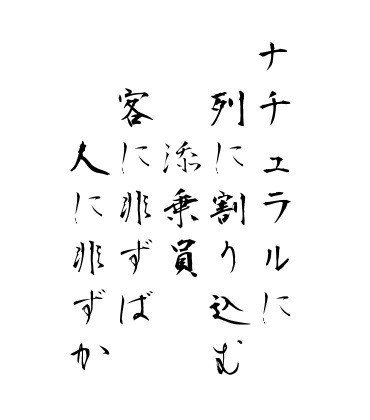 ナチュラルに
列に割り込む
添乗員
客に非ずば
人に非ずか